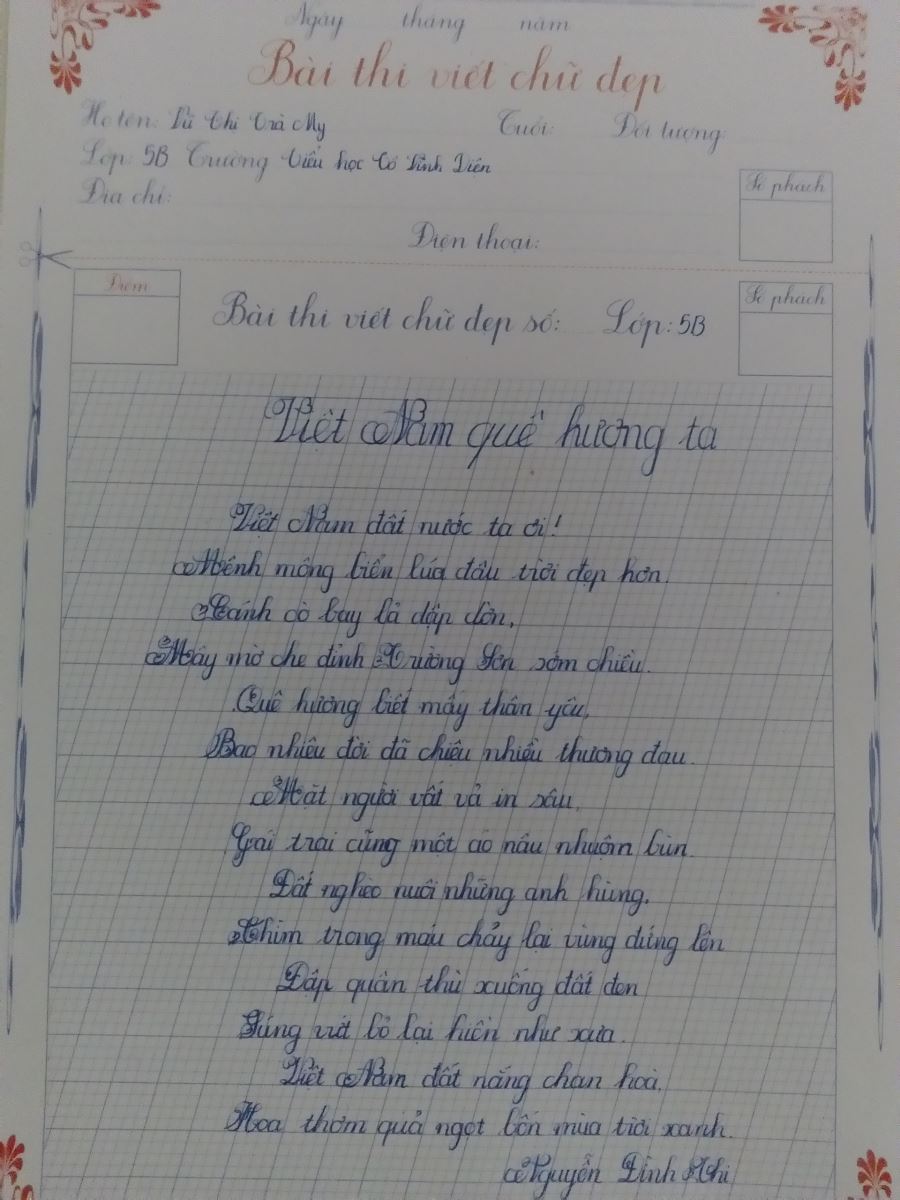 Ngày tháng năm
Bài thi viết chữ đẹp
Họ tên: Lã Thị Trà My Tuổi: Đối tượng:
Lớp: 5B Trường Tiểu học Cô
Địa chỉ:
Số phách
Điện thoại:
Điểm
Bài thi viết chữ đẹp số: Lớp: 5B
Số phách
Việt Nam quê hương ta
Việt Nam đất nước ta ơi!
Mênh mông biển lúa đâu trời đẹp hơn.
Cánh cò bay lả dập dờn,
Mây mờ che đỉnh Trường Sơn sớm chiều.
Quê hương biết mấy thân yêu,
Bao nhiêu đời đã chiệu nhiều thương đau.
Mặt người vất vả in sâu,
Gái trai cũng một áo nâu nhuộm bùn.
Đất nghèo nuôi những anh hùng,
Chìm trong máu chảy lại vùng đứng lên
Đạp quân thù xuống đất đen
Súng vứt bỏ lại hiền như xưa.
Việt Nam đất nắng chan hoà,
Hoa thơm quả ngọt bốn mùa trời xanh.
Nguyễn Đình Thi